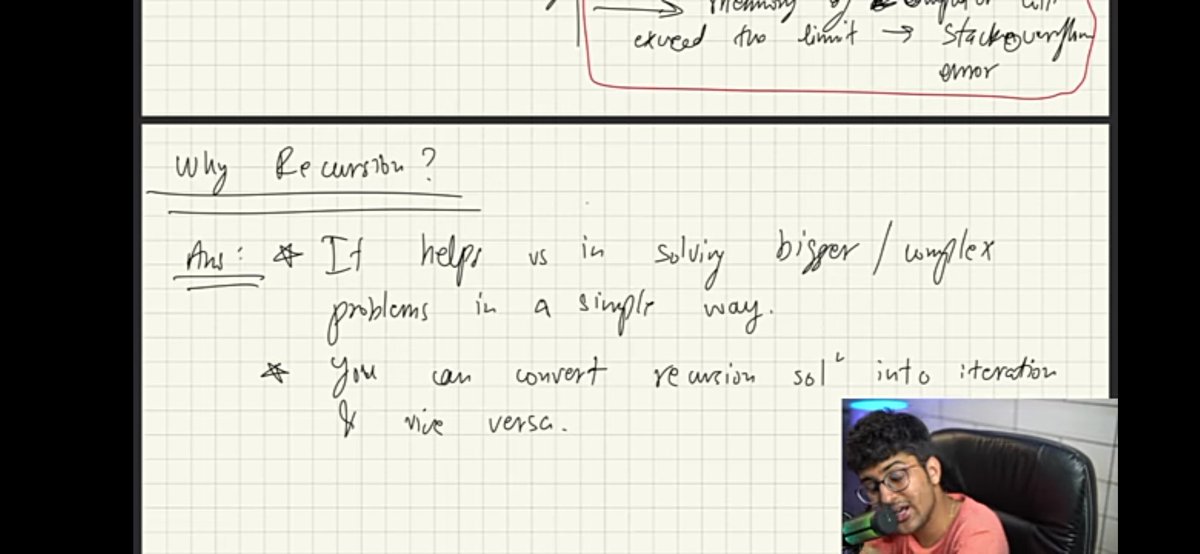 exceed the limit → Stackoverflow
error
Why Recursion?
Ans: * It helps us in solving bigger / complex
problems in a simple way.
* You can convert recursion solⁿ into iteration
& vice versa.